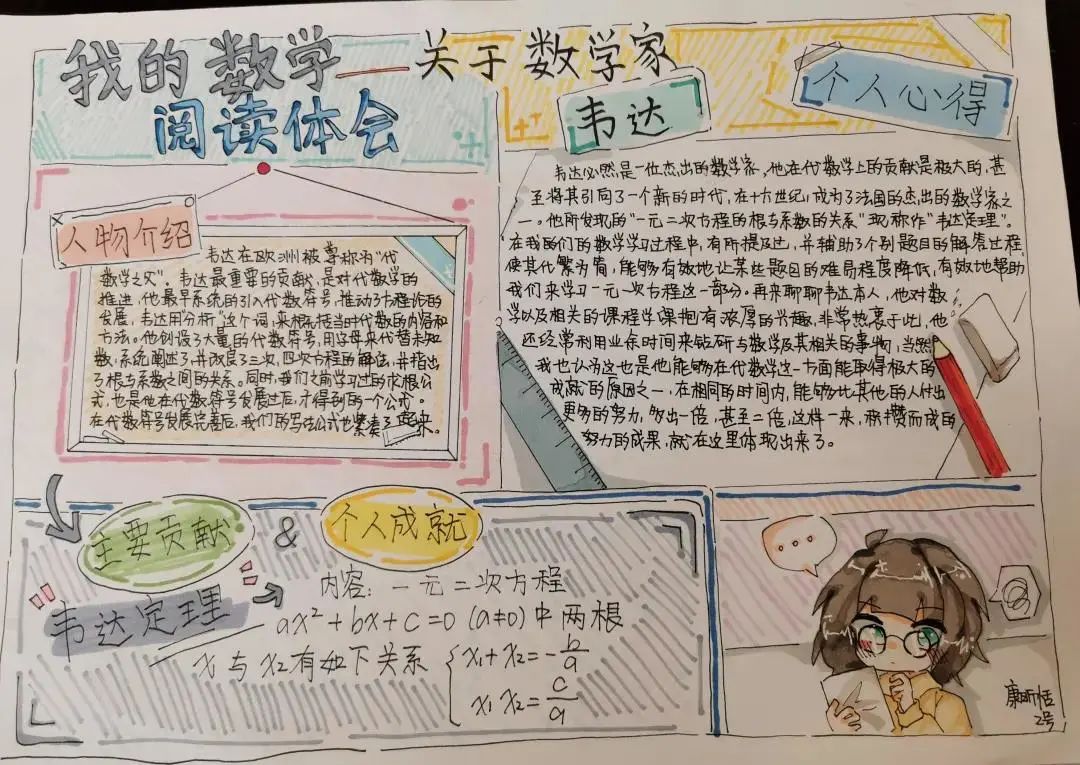 我的数学——关于数学家
阅读体会
韦达
个人心得
人物介绍
韦达在欧洲被尊称为“代
数学之父”。韦达最重要的贡献,是对代数学的
推进,他最早系统的引入代数符号,推动了方程论的
发展,韦达用“分析”这个词,来概括当时代数的内容和
方法。他创设了大量的代数符号,用字母来代替未知
数,系统阐述了,并改良了三次,四次方程的解法,并指出
了根与系数之间的关系。同时,我们之前学习过的求根公
式,也是他在代数符号发展过后,才得到的一个公式。
在代数符号发展完善后,我们的写法公式也繁奏了起来。
韦达必然是一位杰出的数学家,他在代数学上的贡献是极大的,甚
至将其引向了一个新的时代,在十六世纪,成为了法国的杰出的数学家之
一。他所发现的“一元二次方程的根与系数的关系”现称作“韦达定理”。
在我的们的数学学习过程中,有所提及过,并辅助了个别题目的解答过程,
使其化繁为简,能够有效地让某些题目的难易程度降低,有效地帮助
我们来学习一元一次方程这一部分。再来聊聊韦达本人,他对数
学以及相关的课程学课抱有浓厚的兴趣,非常热衷于此,他
还经常利用业余时间来钻研与数学及其相关的事物,当然
我也认为这也是他能够在代数学这一方面能取得极大的
成就的原因之一,在相同的时间内,能够比其他的人付出
更多的努力,多出一倍,甚至二倍,这样一来,积攒而成的
努力的成果,就在这里体现出来了。
主要贡献 & 个人成就
韦达定理
内容:一元二次方程
ax²+bx+c=0 (a≠0)中两根
x₁与x₂有如下关系 { x₁+x₂=-b/a
x₁x₂=c/a
康昕恬
2号